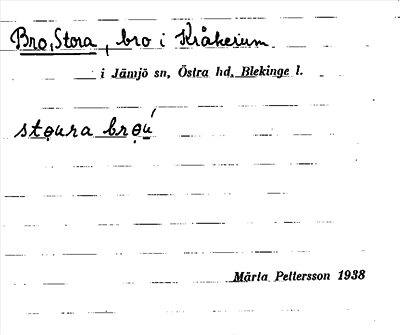 Bro, Stora, bro i Kråkerum
i Jämjö sn, Östra hd, Blekinge l.
stọura brọú
Märta Pettersson 1938